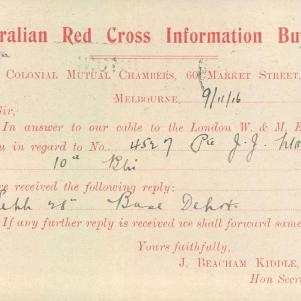 ralian Red Cross Information Bu
Colonial Mutual Chambers, 60 Market Street,
Melbourne, 9/11/16
Sir,
In answer to our cable to the London W. & M. E
u in regard to No. 4527 Pte J. J.
10th
ve received the following reply:
28th Base Depot
If any further reply is received we shall forward same
Yours faithfully,
J. Beacham Kiddle,
Hon Secre